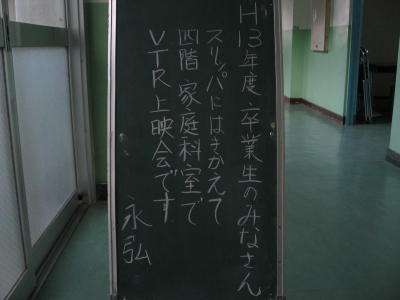 H13年度卒業生のみなさん
スリッパにはきかえて
四階家庭科室で
VTR上映会です
永弘